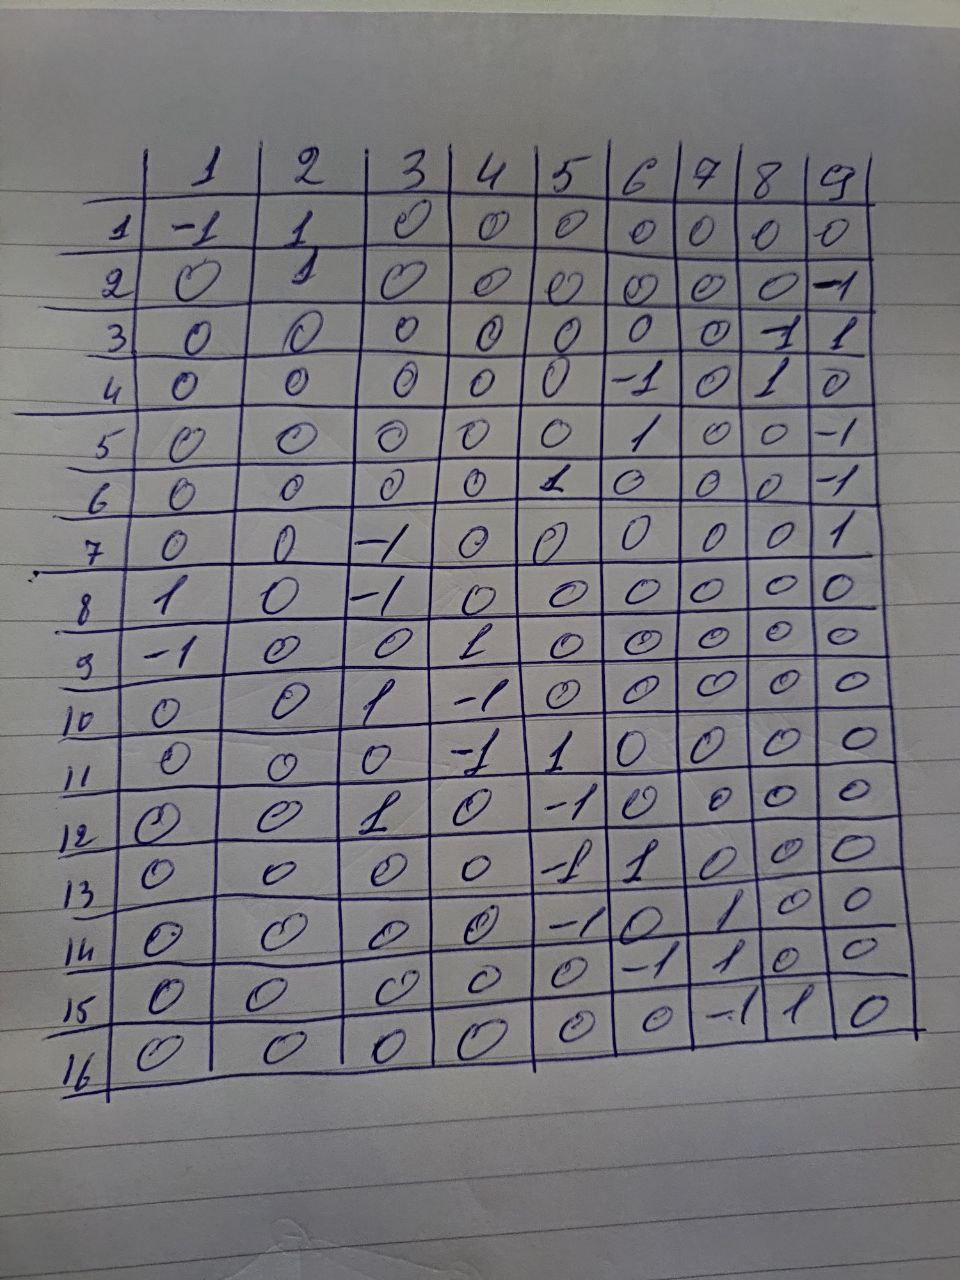 1 2 3 4 5 6 7 8 9
1 -1 1 0 0 0 0 0 0 0
2 0 1 0 0 0 0 0 0 -1
3 0 0 0 0 0 0 0 -1 1
4 0 0 0 0 0 -1 0 1 0
5 0 0 0 0 0 1 0 0 -1
6 0 0 0 0 1 0 0 0 -1
7 0 0 -1 0 0 0 0 0 1
8 1 0 -1 0 0 0 0 0 0
9 -1 0 0 1 0 0 0 0 0
10 0 0 1 -1 0 0 0 0 0
11 0 0 0 -1 1 0 0 0 0
12 0 0 1 0 -1 0 0 0 0
13 0 0 0 0 -1 1 0 0 0
14 0 0 0 0 -1 0 1 0 0
15 0 0 0 0 0 -1 1 0 0
16 0 0 0 0 0 0 -1 1 0